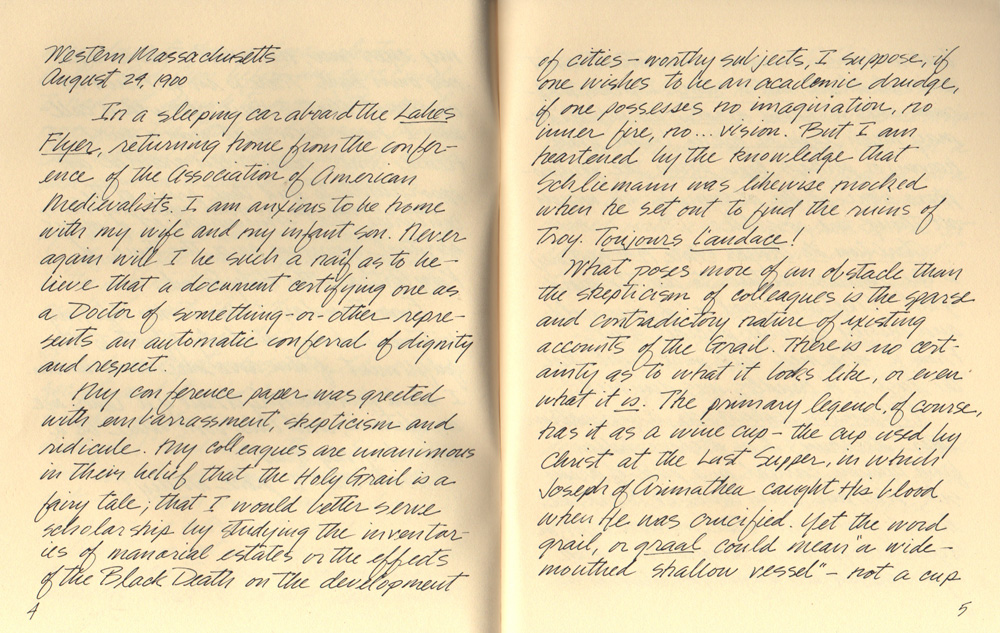 Western Massachusetts
August 29, 1900
In a sleeping car aboard the Lakes
Flyer, returning home from the confer-
ence of the Association of American
Medievalists. I am anxious to be home
with my wife and my infant son. Never
again will I be such a naïf as to be-
lieve that a document certifying one as
a Doctor of something-or-other repre-
sents an automatic conferral of dignity
and respect.
My conference paper was greeted
with embarrassment, skepticism and
ridicule. My colleagues are unanimous
in their belief that the Holy Grail is a
fairy tale; that I would better serve
scholarship by studying the inventor-
ies of manorial estates or the effects
of the Black Death on the development
4
of cities - worthy subjects, I suppose, if
one wishes to be an academic drudge,
if one possesses no imagination, no
inner fire, no... vision. But I am
heartened by the knowledge that
Schliemann was likewise mocked
when he set out to find the ruins of
Troy. Toujours L'audace!
What poses more of an obstacle than
the skepticism of colleagues is the sparse
and contradictory nature of existing
accounts of the Grail. There is no cert-
ainty as to what it looks like, or even
what it is. The primary legend, of course,
has it as a wine cup - the cup used by
Christ at the Last Supper, in which
Joseph of Arimathea caught His blood
when He was crucified. Yet the word
grail, or graal could mean "a wide-
mouthed shallow vessel" - not a cup
5